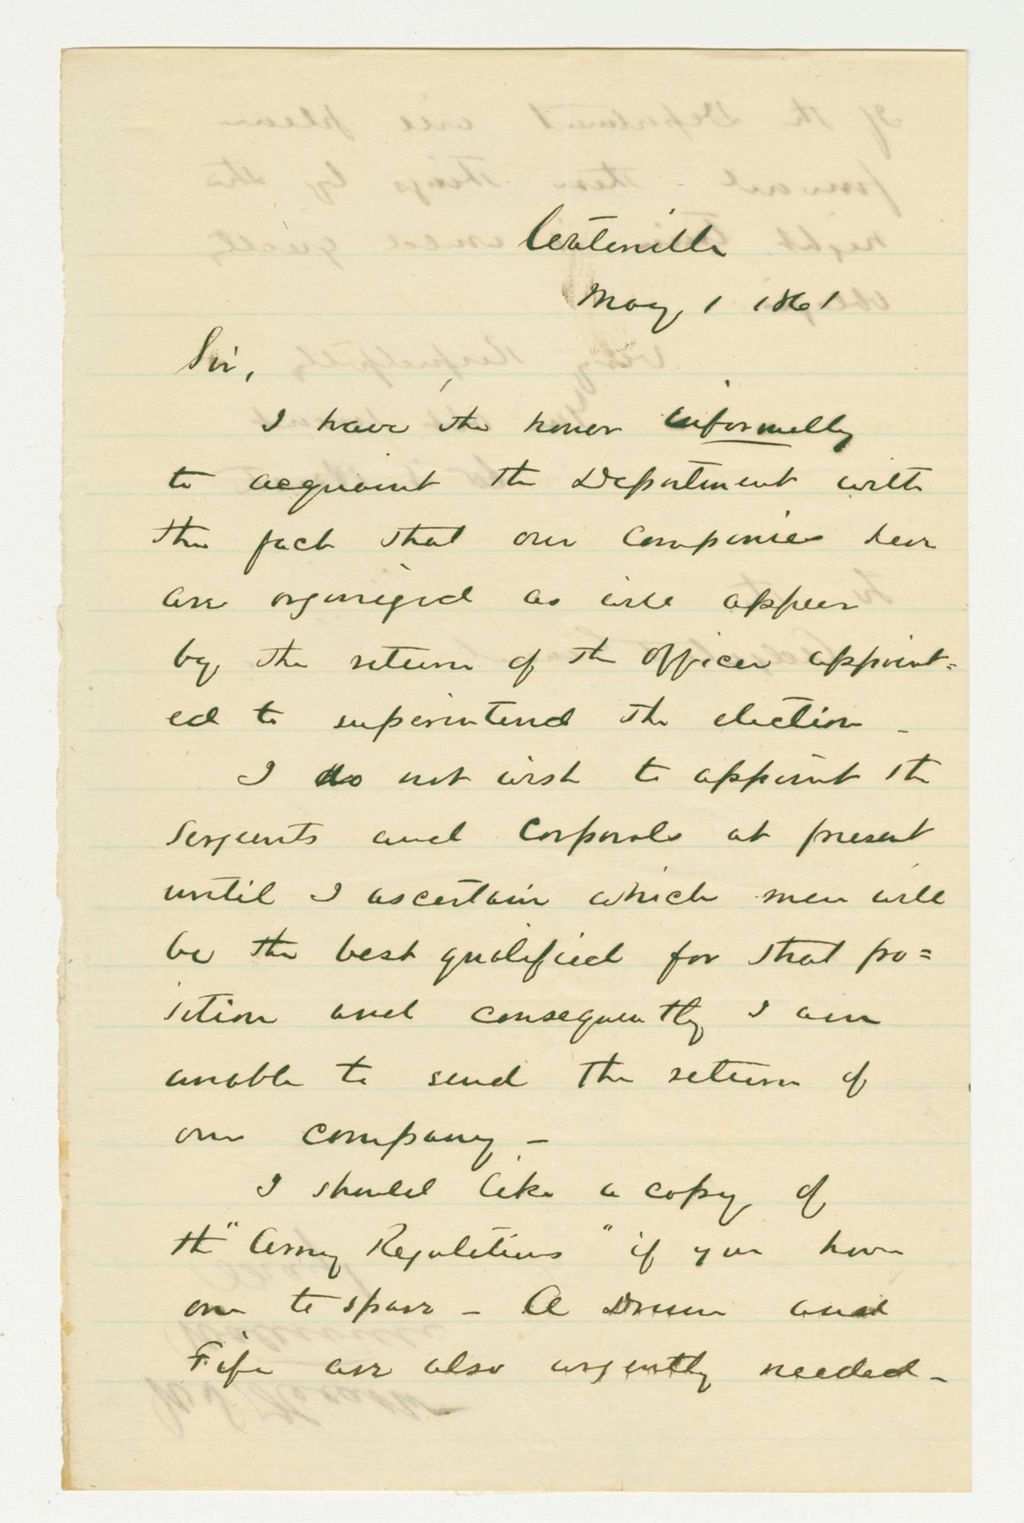 Centerville
May 1 1861
Sir,
I have the honor informally
to acquaint the Department with
the fact that our companies here
are organized as will appear
by the return of the officer appoint=
ed to superintend the election -
I do not wish to appoint the
Serjeants and Corporals at present
until I ascertain which men will
be the best qualified for that po=
sition and consequently I am
unable to send the return of
our company -
I should like a copy of
the "Army Regulations" if you have
one to spare - A Drum and
Fife are also urgently needed -